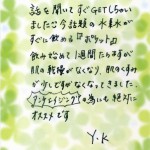 話を聞いてすぐGETしちゃい
ました!!今話題の水素水が
すぐに飲める『ポケット』
飲み始めて1週間たちますが
肌の乾燥がなくなり、肌のくすみ
が少しずつなくなってきました
アンチエイジングの為にも絶対に
オススメです
Y.K